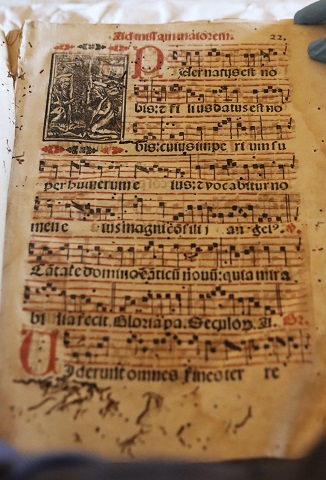 Ad missam maiorem. 22.
PUer natus est no
bis: & fi lius datus est no
bis: cuius impe ri um su
per humerum e ius: & vocabitur no
men e ius magni consili i an gel⁹.
Cantate domino canticũ nouũ: quia mira
bi lia fecit. Gloria pa. Seculop. A. Gr.
UIderunt omnes fines ter re